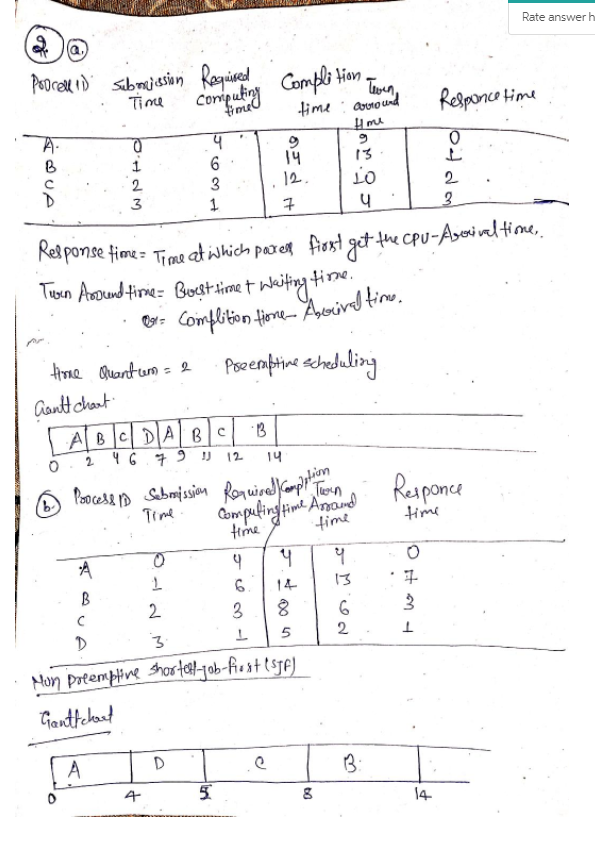 Rate answer h
2. a.
Process ID Submission Time Required computing time Complition time Turn arround time Responce time
A. 0 4 9 9 0
B 1 6 14 13 1
C 2 3 12. 10 2
D 3 1 7 4 3
Response time = Time at which process first get the CPU - Arrival time.
Turn Around time = Burst time + Waiting time.
Or = Complition time - Arrival time.
time Quantum = 2 Preemptive scheduling
Gantt chart
A B C D A B C B
0 2 4 6 7 9 11 12 14
b. Process ID Submission Time Required Computing time Complition time Turn Around time Responce time
A 0 4 4 4 0
B 1 6 14 13 7
C 2 3 8 6 3
D 3 1 5 2 1
Non preemptive shortest-job-first (SJF)
Gantt chart
A D C B
0 4 5 8 14